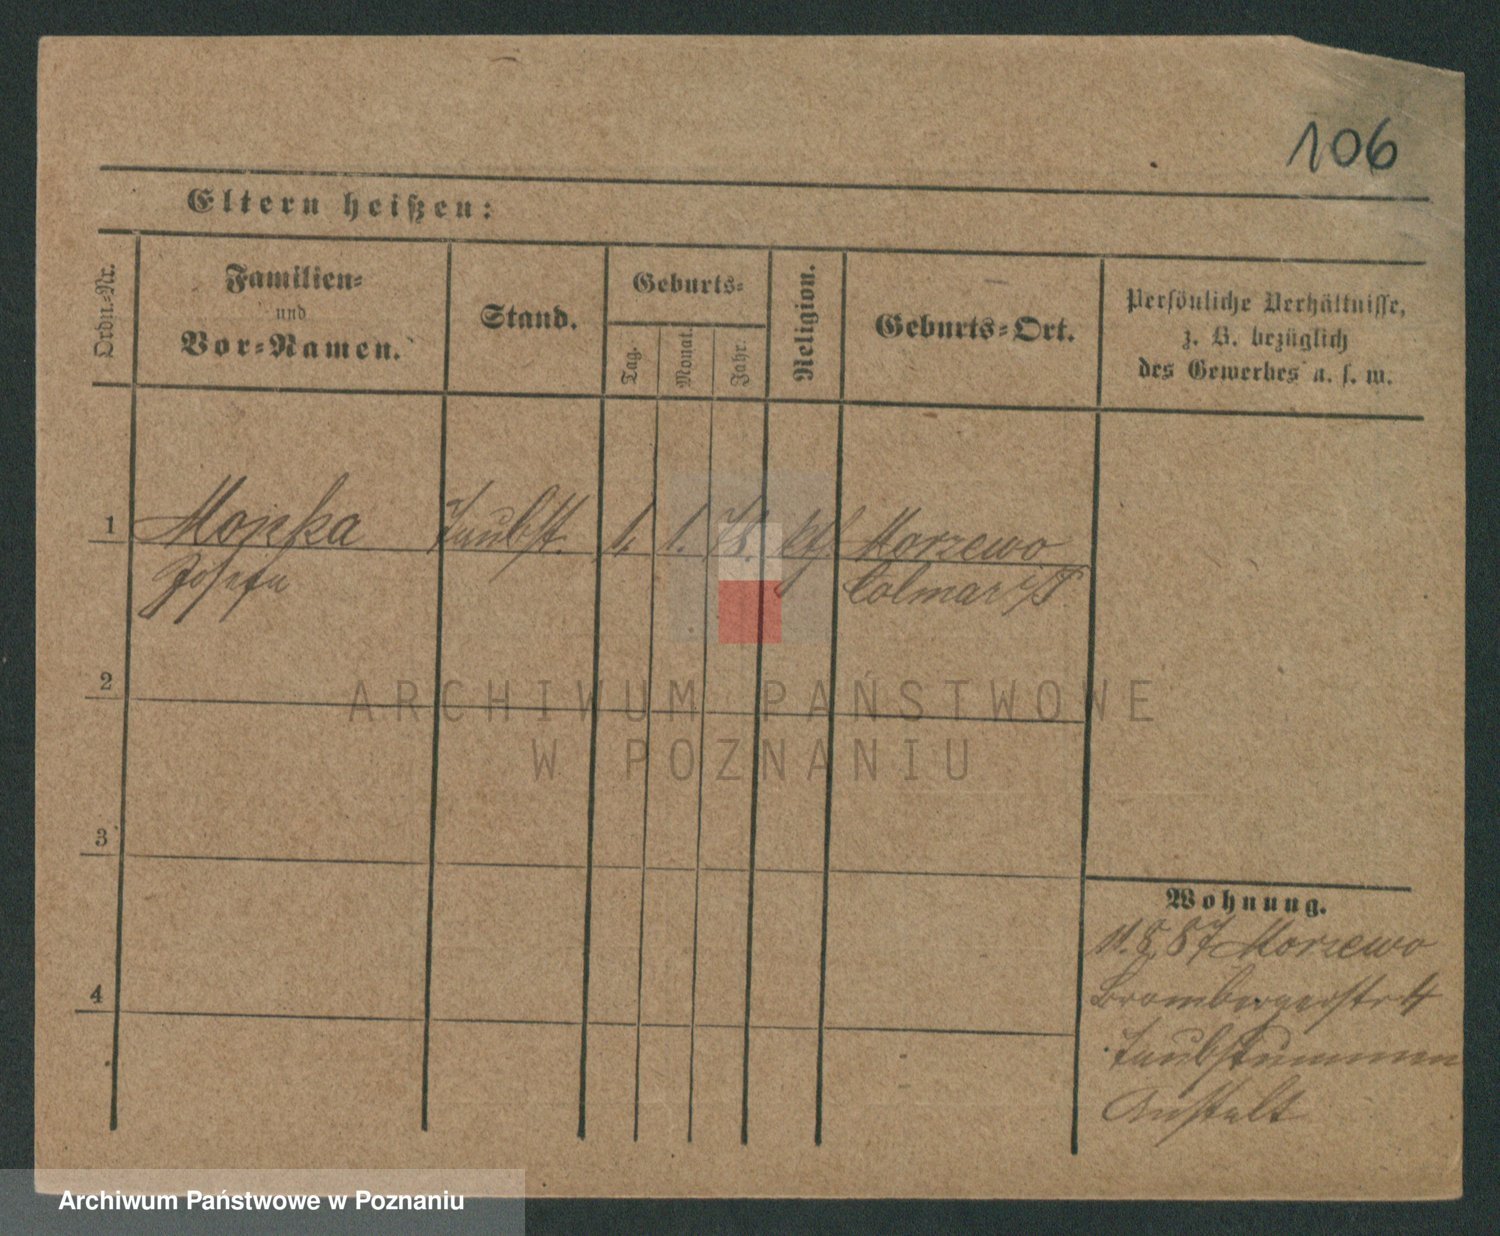 106
Eltern heißen:
Ordn.-Nr.
Familien-
und
Vor-Namen.
Stand.
Geburts-
Tag.
Monat.
Jahr.
Religion.
Geburts-Ort.
Persönliche Verhältnisse,
z. B. bezüglich
des Gewerbes u. s. w.
1
Taubst. 1. 1. 78. kf. Morzewo
Josefa
Colmar i/P.
2
3
4
Wohnung.
11.8.87 Morzewo
Brombergerstr 4
Taubstummen
Anstalt
ARCHIWUM PAŃSTWOWE
W POZNANIU
Archiwum Państwowe w Poznaniu